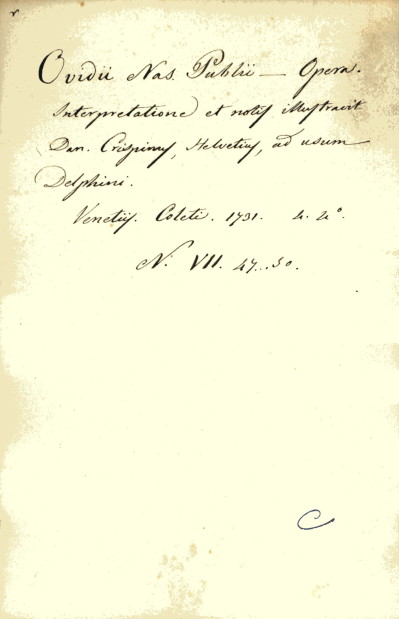 Ovidii Nas. Publii — Opera.
Interpretatione et notis illustravit
Dan. Crispinus, Helvetius, ad usum
Delphini.
Venetiis. Coleti. 1731. 4. 4°.
N. VII. 47..50.
C